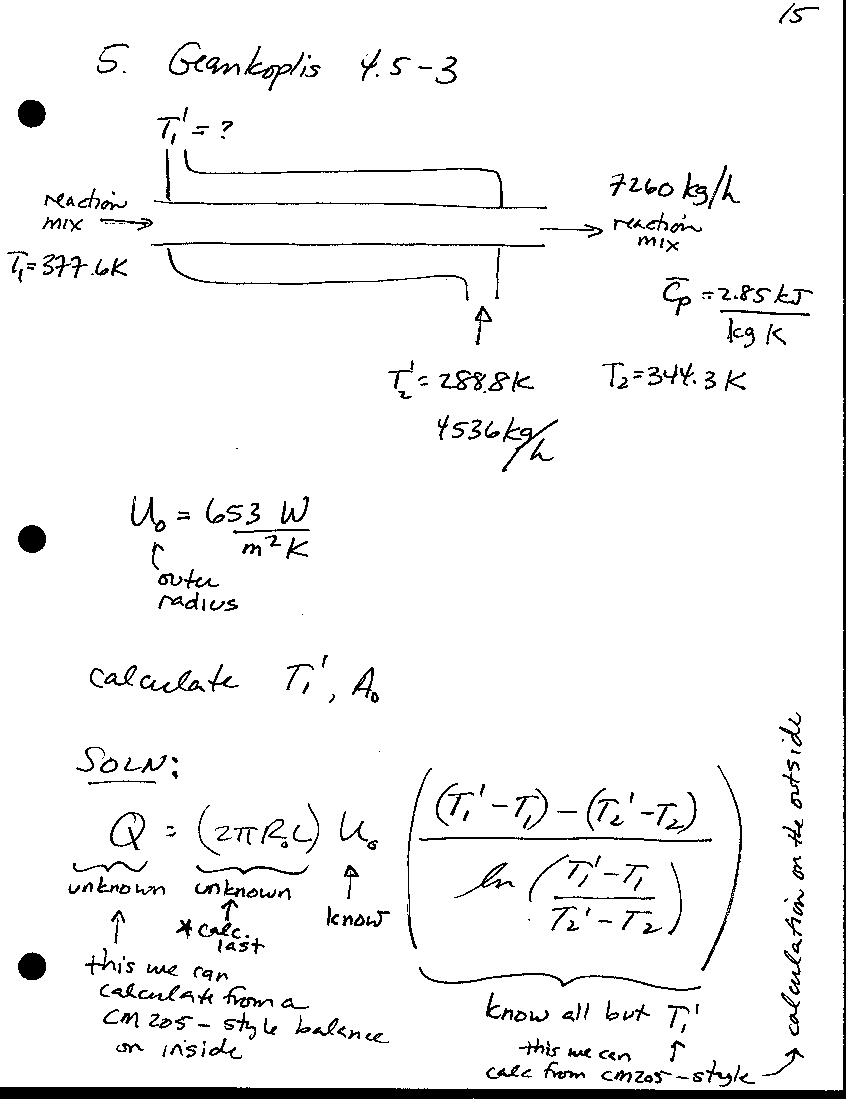 15
5. Geankoplis 4.5-3
T₁' = ?
7260 kg/h
reaction
mix →
→ reaction
mix
T₁=377.6K
C̅p = 2.85 kJ
kg K
T₂' = 288.8K
T₂=344.3 K
4536 kg/h
U₀ = 653 W
m² K
outer
radius
calculate T₁', A₀
SOLN:
Q = (2πR₀L) U₀ ( (T₁' - T₁) - (T₂' - T₂)
ln ( T₁' - T₁
T₂' - T₂ ) )
unknown
unknown
know
* calc.
last
this we can
calculate from a
CM205-style balance
on inside
know all but T₁'
this we can
calc from CM205-style
calculation on the outside